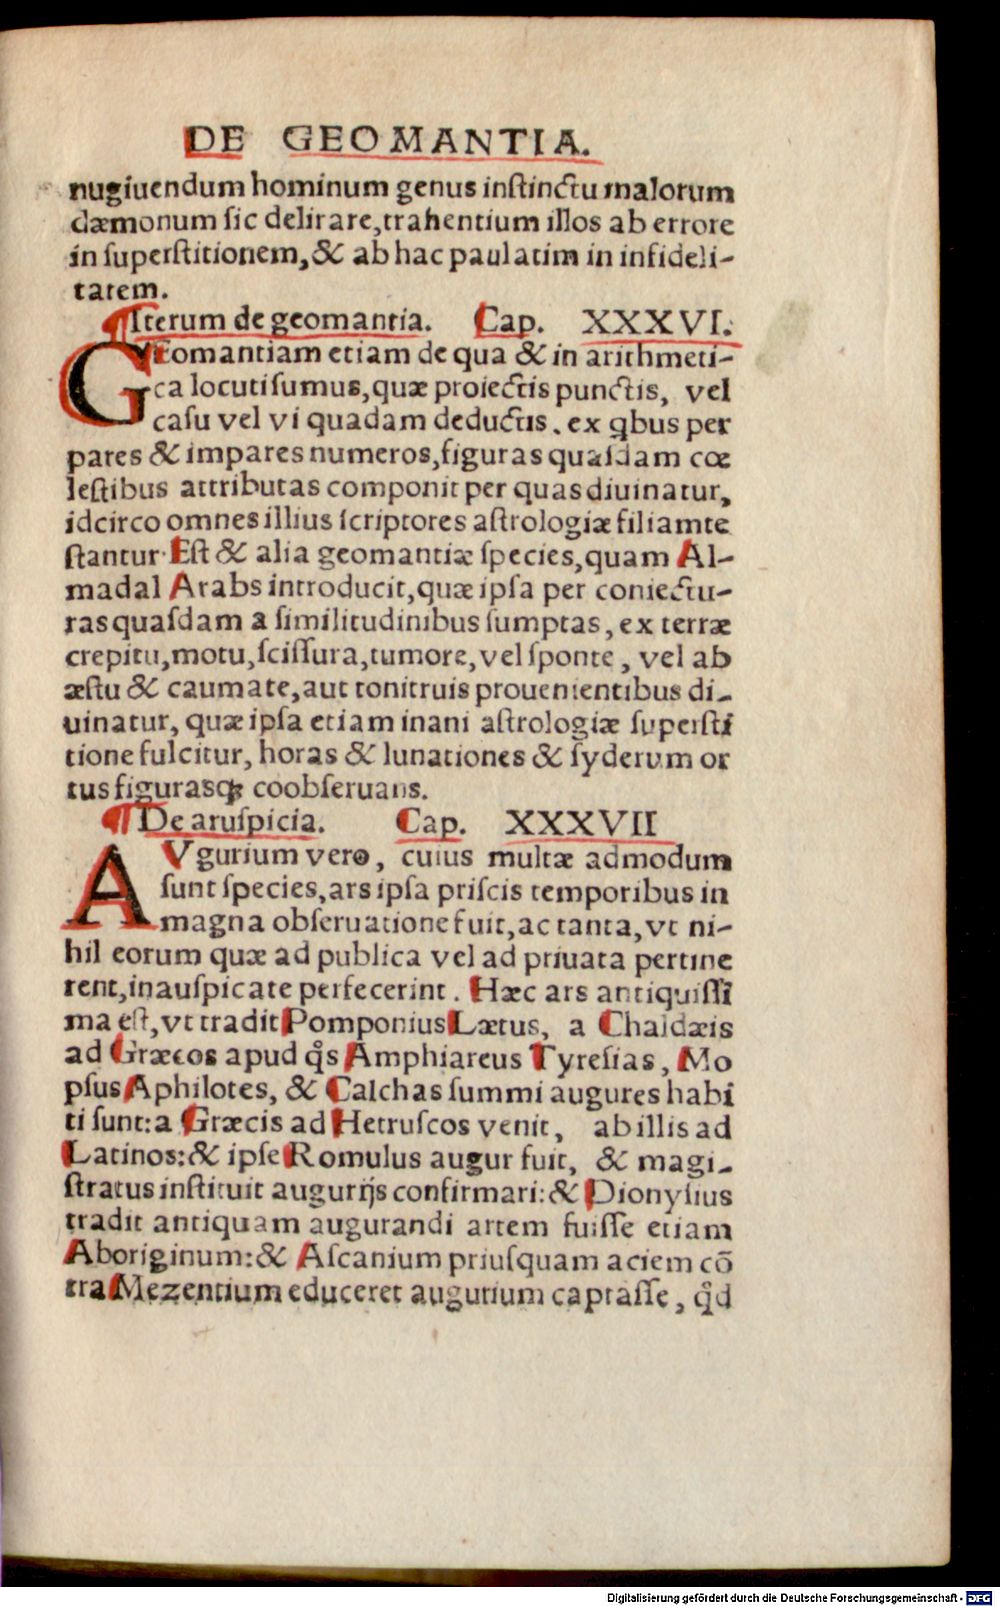 DE GEOMANTIA.
nugiuendum hominum genus instinctu malorum
dæmonum sic delirare, trahentium illos ab errore
in superstitionem, & ab hac paulatim in infideli-
tatem.
¶Iterum de geomantia. Cap. XXXVI.
GEomantiam etiam de qua & in arithmeti-
ca locuti sumus, quæ proiectis punctis, vel
casu vel vi quadam deductis. ex qbus per
pares & impares numeros, figuras quasdam cœ
lestibus attributas componit per quas diuinatur,
idcirco omnes illius scriptores astrologiæ filiam te
stantur· Est & alia geomantiæ species, quam Al-
madal Arabs introducit, quæ ipsa per coniectu-
ras quasdam a similitudinibus sumptas, ex terræ
crepitu, motu, scissura, tumore, vel sponte, vel ab
æstu & caumate, aut tonitruis prouenientibus di-
uinatur, quæ ipsa etiam inani astrologiæ supersti
tione fulcitur, horas & lunationes & syderum or
tus figurasqꝫ coobseruans.
¶De aruspicia. Cap. XXXVII
AVgurium vero, cuius multæ admodum
sunt species, ars ipsa priscis temporibus in
magna obseruatione fuit, ac tanta, vt ni-
hil eorum quæ ad publica vel ad priuata pertine
rent, inauspicate perfecerint. Hæc ars antiquissi
ma est, vt tradit Pomponius Lætus, a Chaldæis
ad Græcos apud q̊s Amphiareus Tyresias, Mo
psus Aphilotes, & Calchas summi augures habi
ti sunt: a Græcis ad Hetruscos venit, ab illis ad
Latinos: & ipse Romulus augur fuit, & magi-
stratus instituit augurijs confirmari: & Dionysius
tradit antiquam augurandi artem fuisse etiam
Aboriginum: & Ascanium priusquam aciem cō
tra Mezentium educeret augurium captasse, q̊d
Digitalisierung gefördert durch die Deutsche Forschungsgemeinschaft - DFG